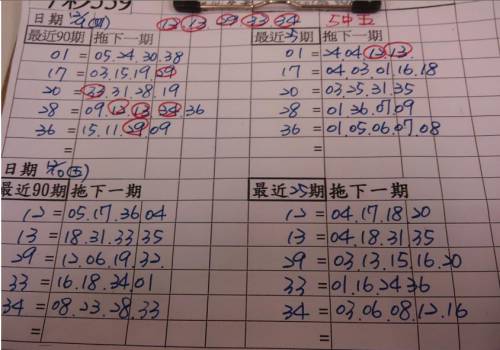 539
日期 (四) 12 13 29 33 34 5中五
最近90期 拖下一期 最近25期 拖下一期
01 = 05.24.30.38 01 = 24.04.12.13.
17 = 03.15.19.29 17 = 04.03.01.16.18
20 = 33.31.28.19 20 = 03.25.31.35
28 = 09.12.13.34.36 28 = 01.36.07.09
36 = 15.11.29.09 36 = 01.05.06.07.08
= =
日期 (五)
最近90期 拖下一期 最近25期 拖下一期
12 = 05.17.36.04 12 = 04.17.18.20
13 = 18.31.33.35 13 = 04.18.31.35
29 = 12.06.19.32 29 = 03.13.15.16.20
33 = 16.18.34.01 33 = 01.16.24.36
34 = 08.23.28.33 34 = 03.06.08.12.16
= =